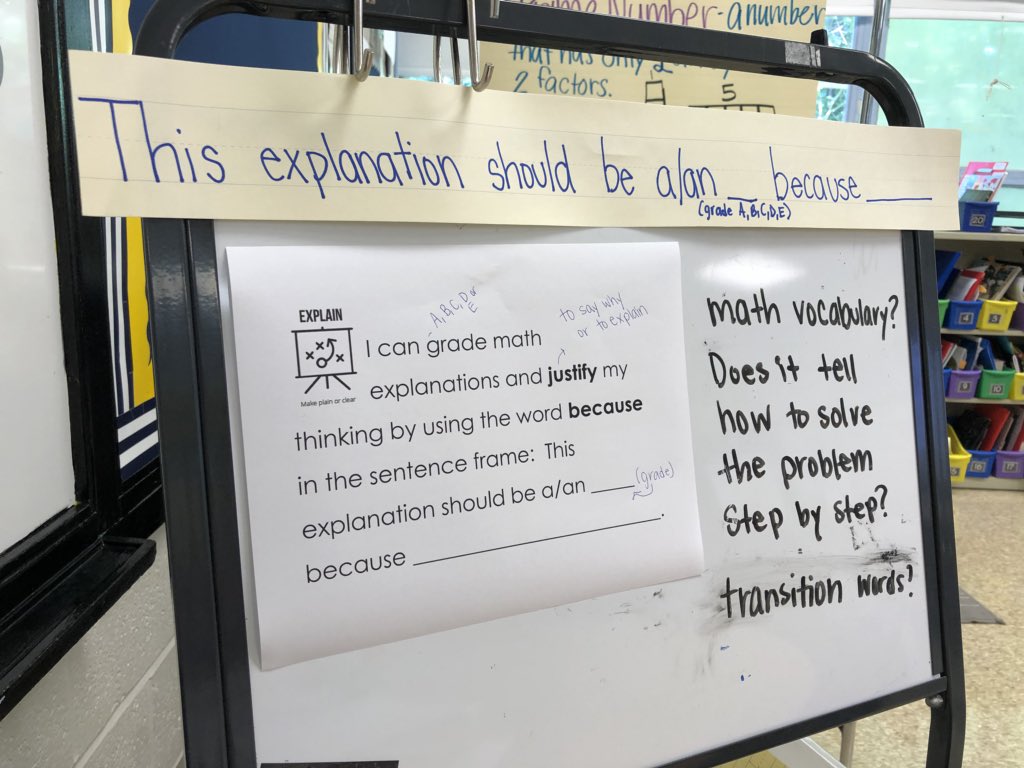 Number-anumber
that has only 2
2 factors.
5
This explanation should be a/an __ because ____
(grade A,B,C,D,E)
EXPLAIN
Make plain or clear
A,B,C,D or
E
to say why
or to explain
I can grade math
explanations and justify my
thinking by using the word because
in the sentence frame: This
explanation should be a/an ____ (grade)
because ____________________.
math vocabulary?
Does it tell
how to solve
the problem
step by step?
transition words?
20
4
5
9
10
16
17